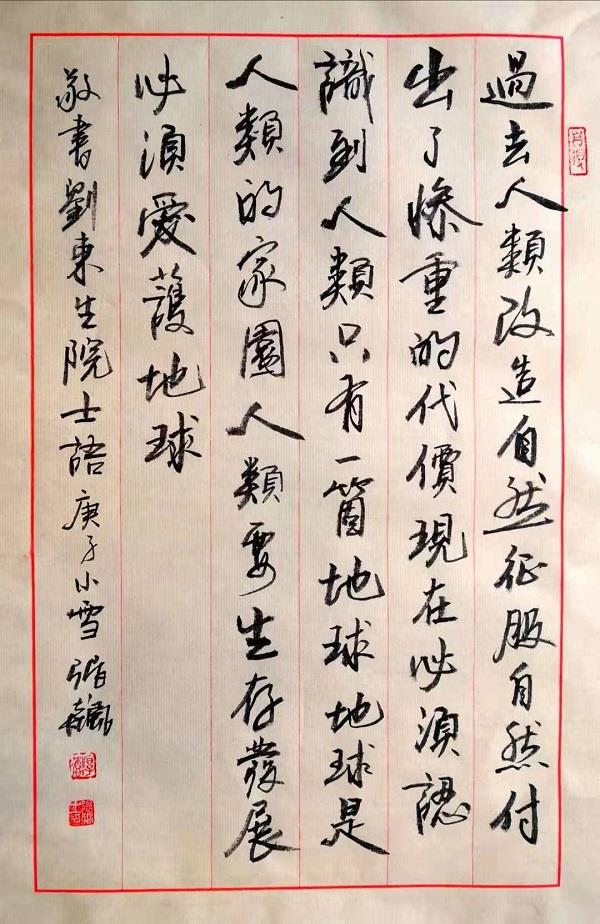 過去人類改造自然征服自然付
出了慘重的代價現在必須認
識到人類只有一箇地球地球是
人類的家園人類要生存發展
必須愛護地球
敬書劉東生院士語庚子小雪張